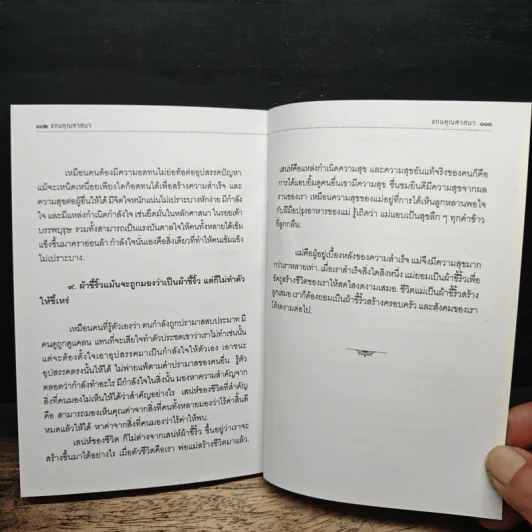 ๑๐๒ แทนคุณศาสนา
เหมือนคนต้องมีความอดทนไม่ย่อท้อต่ออุปสรรคปัญหา
แม้จะเหน็ดเหนื่อยเพียงใดก็อดทนได้เพื่อสร้างความสำเร็จ และ
ความสุขต่อผู้อื่นให้ได้ มีจิตใจหนักแน่นไม่เปราะบางหักง่าย มีกำลัง
ใจ และมีแหล่งกำเนิดกำลังใจ เช่นยึดมั่นในหลักศาสนา ในรอยเท้า
บรรพบุรุษ รวมทั้งสามารถเป็นแรงบันดาลใจให้คนทั้งหลายได้เข้ม
แข็งขึ้นมาคราอ่อนล้า กำลังใจนั่นเองคือสิ่งเดียวที่ทำให้คนเข้มแข็ง
ไม่เปราะบาง.
๙. ผ้าขี้ริ้วแม้นจะถูกมองว่าเป็นผ้าขี้ริ้ว แต่ก็ไม่ทำตัว
ให้ขี้เหร่
เหมือนคนที่รู้ตัวเองว่า ตนกำลังถูกปรามาสสบประมาท มี
คนดูถูกดูแคลน แทนที่จะเสียใจทำตัวประชดเขาว่าเราไม่ทำเช่นนั้น
แต่จะต้องตั้งใจเอาอุปสรรคมาเป็นกำลังใจให้ตัวเอง เอาชนะ
อุปสรรคตรงนั้นให้ได้ ไม่พ่ายแพ้ตามคำปรามาสของคนอื่น รู้ตัว
ตลอดว่ากำลังทำอะไร มีกำลังใจในสิ่งนั้น มองหาความสำคัญจาก
สิ่งที่คนมองไม่เห็นให้ได้ว่าสำคัญอย่างไร เสน่ห์ของชีวิตที่สำคัญ
คือ สามารถมองเห็นคุณค่าจากสิ่งที่คนทั้งหลายมองว่าไร้ค่าสิ้นดี
หมดแล้วให้ได้ หาค่าจากสิ่งที่คนมองว่าไร้ค่าให้พบ.
เสน่ห์ของชีวิต ก็ไม่ต่างจากเสน่ห์ผ้าขี้ริ้ว ขึ้นอยู่ว่าเราจะ
สร้างขึ้นมาได้อย่างไร เมื่อตัวชีวิตคือเรา พ่อแม่สร้างชีวิตมาแล้ว.
แทนคุณศาสนา ๑๐๓
เสน่ห์คือแหล่งกำเนิดความสุข และความสุขอันแท้จริงของคนก็คือ
การได้แอบยิ้มดูคนอื่นเขามีความสุข ชื่นชมยินดีมีความสุขจากผล
งานของเรา เหมือนความสุขของแม่อยู่ที่การได้เห็นลูกหลานพอใจ
กับฝีมือปรุงอาหารของแม่ รู้เถิดว่า แม่แอบเป็นสุขลึก ๆ ทุกคำข้าว
ที่ลูกกลืน.
แม่คือผู้อยู่เบื้องหลังของความสำเร็จ แม่จึงมีความสุขมาก
กว่าเราหลายเท่า. เมื่อเราสำเร็จสิ่งใดสิ่งหนึ่ง แม่ยอมเป็นผ้าขี้ริ้วเพื่อ
ขัดถูสร้างชีวิตของเราให้สดใสงดงามเสมอ. ชีวิตแม่เป็นผ้าขี้ริ้วสร้าง
ลูกเสมอ เราก็ต้องยอมเป็นผ้าขี้ริ้วสร้างครอบครัว และสังคมของเรา
ให้งดงามต่อไป.